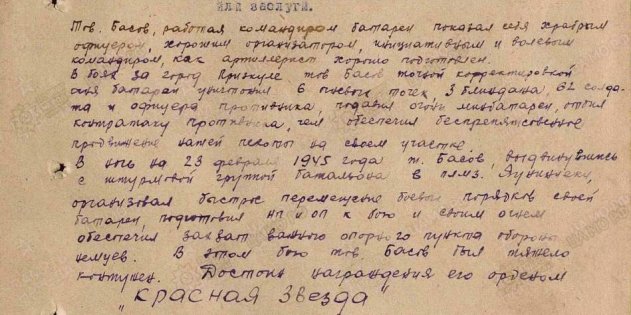 или заслуги.
Тов. Басов, работая командиром батареи показал себя храбрым
офицером, хорошим организатором, инициативным и волевым
командиром, как артиллерист хорошо подготовлен.
В боях за город Прикуле тов Басов точной корректировкой
огня батареи уничтожил 6 огневых точек, 3 блиндажа, 62 солда-
та и офицера противника, подавил огонь минбатареи, отбил
контратаку противника, чем обеспечил беспрепятственное
продвижение нашей пехоты на своем участке.
В ночь на 23 февраля 1945 года т. Басов, выдвинувшись
с штурмовой группой батальона в
организовал быстрое перемещение боевых порядков своей
батареи, подготовил НП и ОП к бою и своим огнем
обеспечил захват важного опорного пункта обороны
немцев. В этом бою тов. Басов был тяжело
контужен. Достоин награждения его орденом
"Красная Звезда"